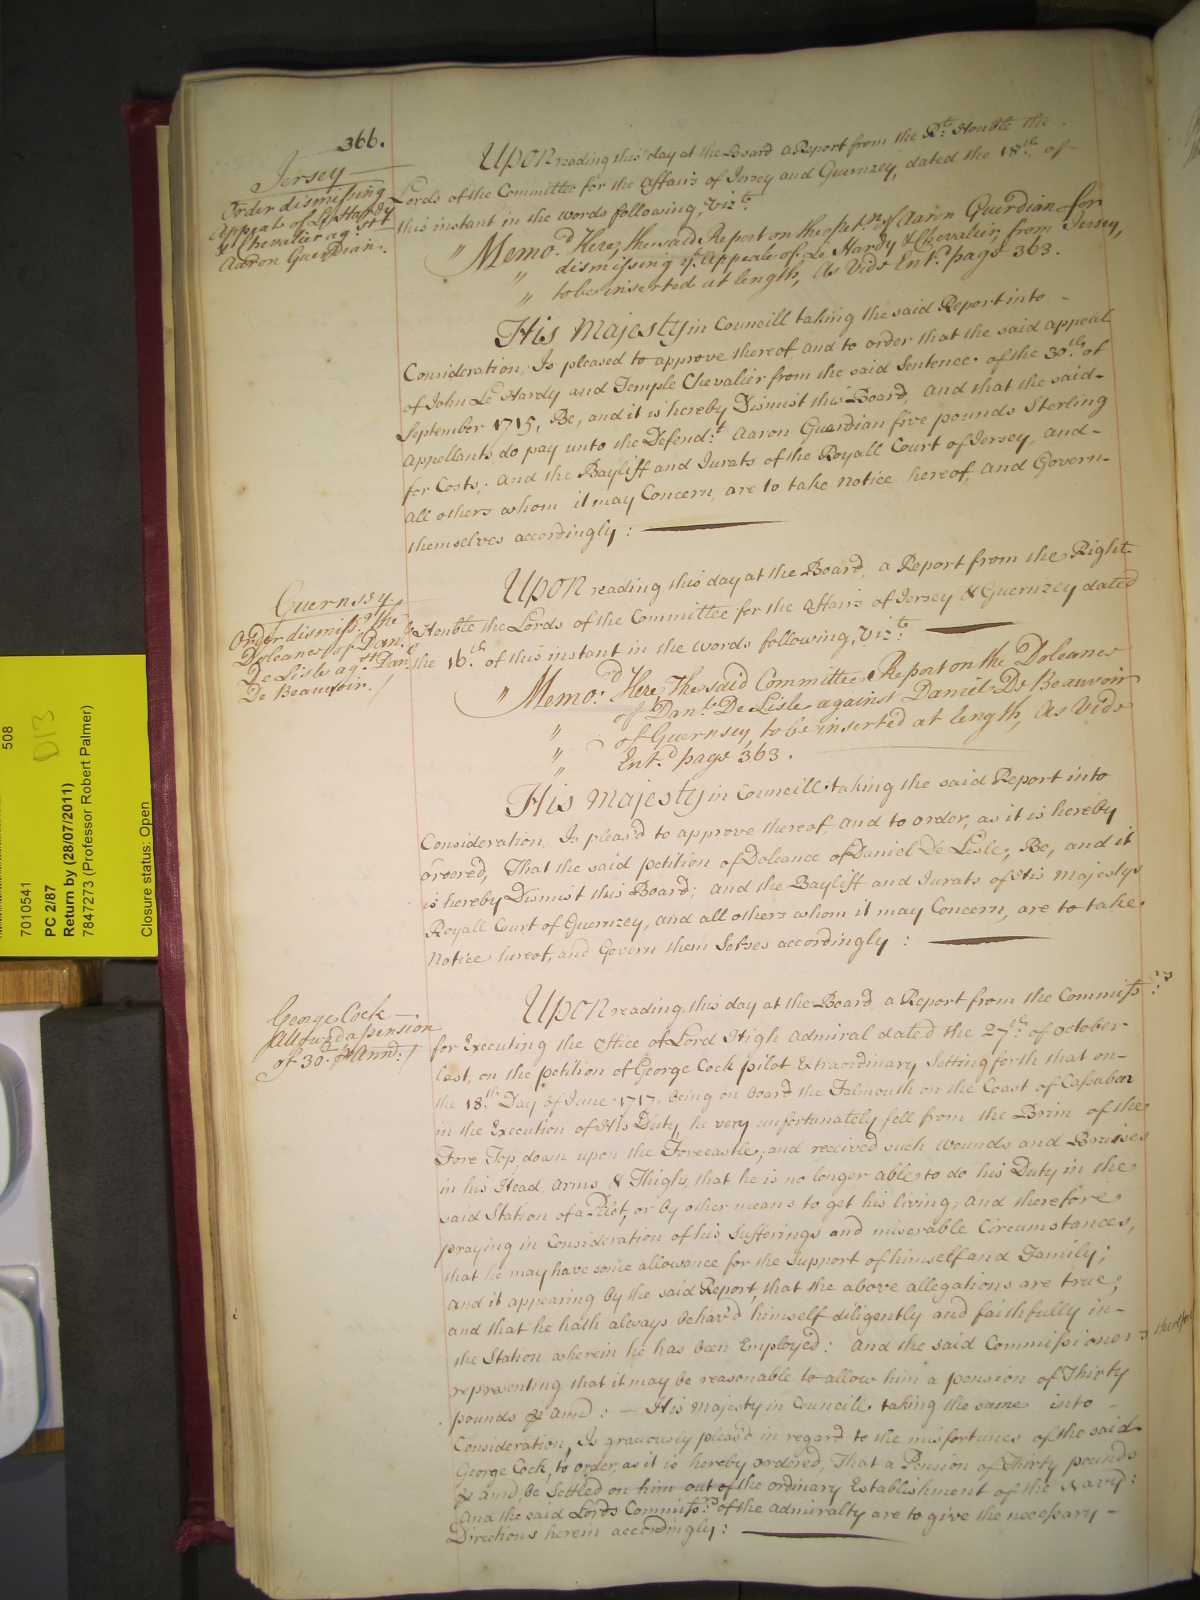 366.
Jersey
Order dismissing
Appeals of Le Hardy
& Chevalier ag:st
Aaron Guerdian.
Upon reading this day at the Board a Report from the Rt: Honble the
Lords of the Committee for the affairs of Jersey and Guernzey, dated the 18th: of
this instant in the words following, Vizt:
" Memo:d Here, the said Report on the petn: of Aaron Guerdian for
" dismissing ye. Appeals of Le Hardy & Chevalier, from Jersey,
" to be inserted at length, As Vide Ent:d page 363.
His Majesty in Councill taking the said Report into -
Consideration, Is pleased to approve thereof and to order that the said appeal
of John Le Hardy and Temple Chevalier from the said Sentence of the 30th: of
September 1715, Be, and it is hereby Dismist this Board, And that the said-
Appellants do pay unto the Defend:t Aaron Guerdian five pounds Sterling
for Costs, And the Bayliff and Jurats of the Royall Court of Jersey, and-
all others whom it may Concern, are to take notice hereof, and Govern-
themselves accordingly :
Guernsey
Order dismiss:g the
Doleance of Dan:l
De Lisle ag:st Dan:l
De Beauvoir.
Upon reading this day at the Board, a Report from the Right
Honble the Lords of the Committee for the Affairs of Jersey & Guernzey dated
the 16:th of this instant in the words following, Vizt:
" Memo:d Here, The said Committees Report on the Doleance
" of Dan:l De Lisle against Daniel De Beauvoir
" of Guernsey, to be inserted at length, As Vide
" Ent:d page 363.
His Majesty in Councill taking the said Report into
Consideration, Is pleas'd to approve thereof, and to order, as it is hereby
ordered, That the said petition of Doleance of Daniel De Lisle, Be, and it
is hereby Dismist this Board; and the Bayliff and Jurats of His Majestys
Royall Court of Guernzey, and all others whom it may Concern, are to take
Notice hereof, and Govern them Selves accordingly :
George Cock -
Allow'd a pension
of 30£ ⅌ Annũ:/
Upon reading this day at the Board, a Report from the Commiss:rs
for Executing the Office of Lord High Admiral dated the 27th: of October
last, on the petition of George Cock pilot Extraordinary Setting forth that on-
the 18:th Day of June 1717, being on board the Falmouth on the Coast of Cassabon
in the Execution of His Duty, he very unfortunately fell from the Brim of the
Fore Top, down upon the Forecastle, and received such wounds and Bruises
in his Head, Arms & Thighs, that he is no longer able to do his Duty in the
said Station of a Pilot, or by other means to get his living; and therefore
praying in Consideration of his Sufferings and miserable Circumstances,
that he may have some allowance for the Support of himself and Family;
and it appearing by the said Report, that the above allegations are true;
and that he hath always behav'd himself diligently and faithfully in-
the Station wherein he has been Employed: And the said Commissioners therefore
representing that it may be reasonable to allow him a pension of Thirty
pounds ⅌ annũ: - His Majesty in Councill, taking the same into -
Consideration, Is graciously pleas'd in regard to the misfortunes of the said
George Cock, to order, as it is hereby ordered, That a Pension of Thirty pounds
⅌ annũ, be Settled on him out of the ordinary Establishment of the Navy:
And the said Lords Commiss:rs of the Admiralty are to give the necessary -
Directions herein accordingly :
508
D13
7010541
PC 2/87
Return by (28/07/2011)
7847273 (Professor Robert Palmer)
Closure status: Open